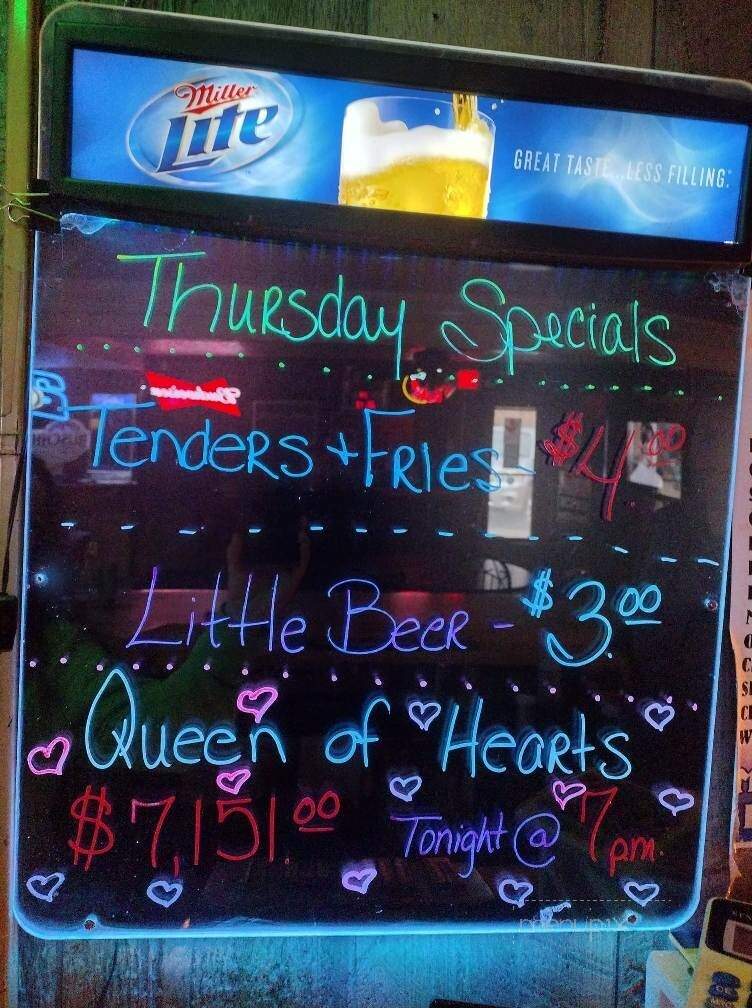 Miller
Lite
GREAT TASTE...LESS FILLING.
Thursday Specials
Budweiser
BUSCH
Tenders + Fries - $4.00
Little Beer - $3.00
Queen of Hearts
$7,151.00 Tonight @ 7pm.
menupix